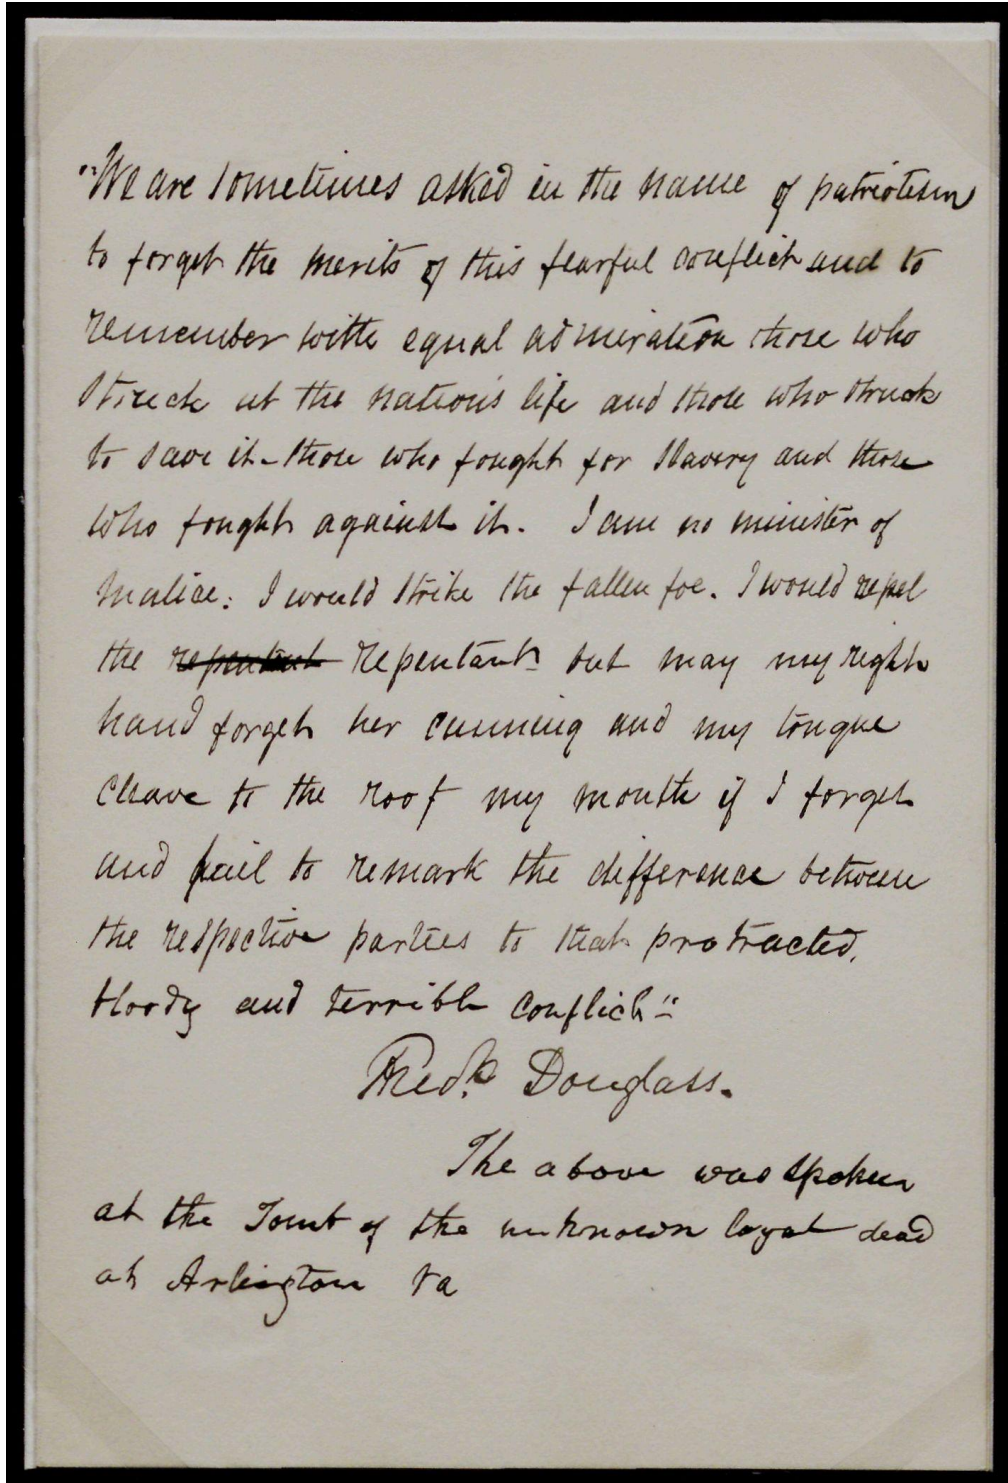 "We are sometimes asked in the name of patriotism
to forget the merits of this fearful conflict and to
remember with equal admiration those who
struck at the nation's life and those who struck
to save it - those who fought for slavery and those
who fought against it. I am no minister of
malice: I would strike the fallen foe. I would repel
the repentant repentant - but may my right
hand forget her cunning and my tongue
cleave to the roof my mouth if I forget
and fail to remark the difference between
the respective parties to that protracted,
bloody and terrible conflict"
Fredk Douglass.
The above was spoken
at the Tomb of the unknown loyal dead
at Arlington Va